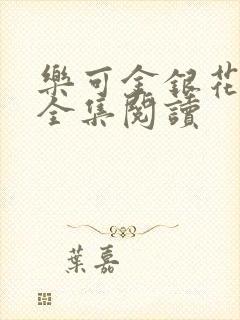 樂可金銀花
全集閱讀
葉嘉